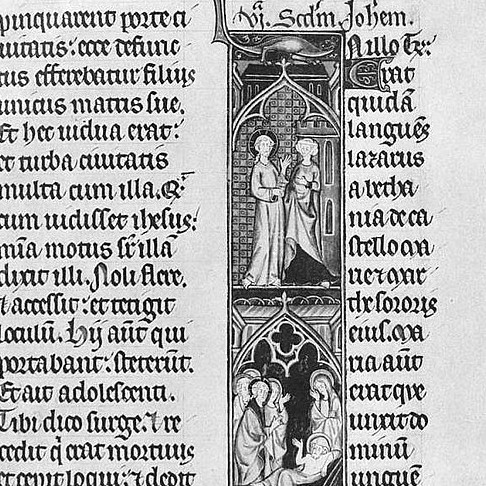 pinquarent porte ci
uitatis: ecce defunc
tus efferebatur filius
unicus matris sue.
Et hec uidua erat:
et turba ciuitatis
multa cum illa. Q̄
cum uidisset ihesus:
mīa motus sr̄ illā
dixit illi. Noli flere.
⁊ accessit: et tetigit
loculū. Hij aūt qui
portabant: steterūt.
Et ait adolescenti.
Tibi dico surge. ⁊ re
cedit q̄ erat mortuus
et cepit loqui: ⁊ dedit
Scdm Johem.
N illo te:
Erat
quidā
languēs
lazarus
a betha
nia de ca
stello ma
rie ⁊ mar
the sororis
eius. Ma
ria aūt
erat que
unxit do
minū
unguē